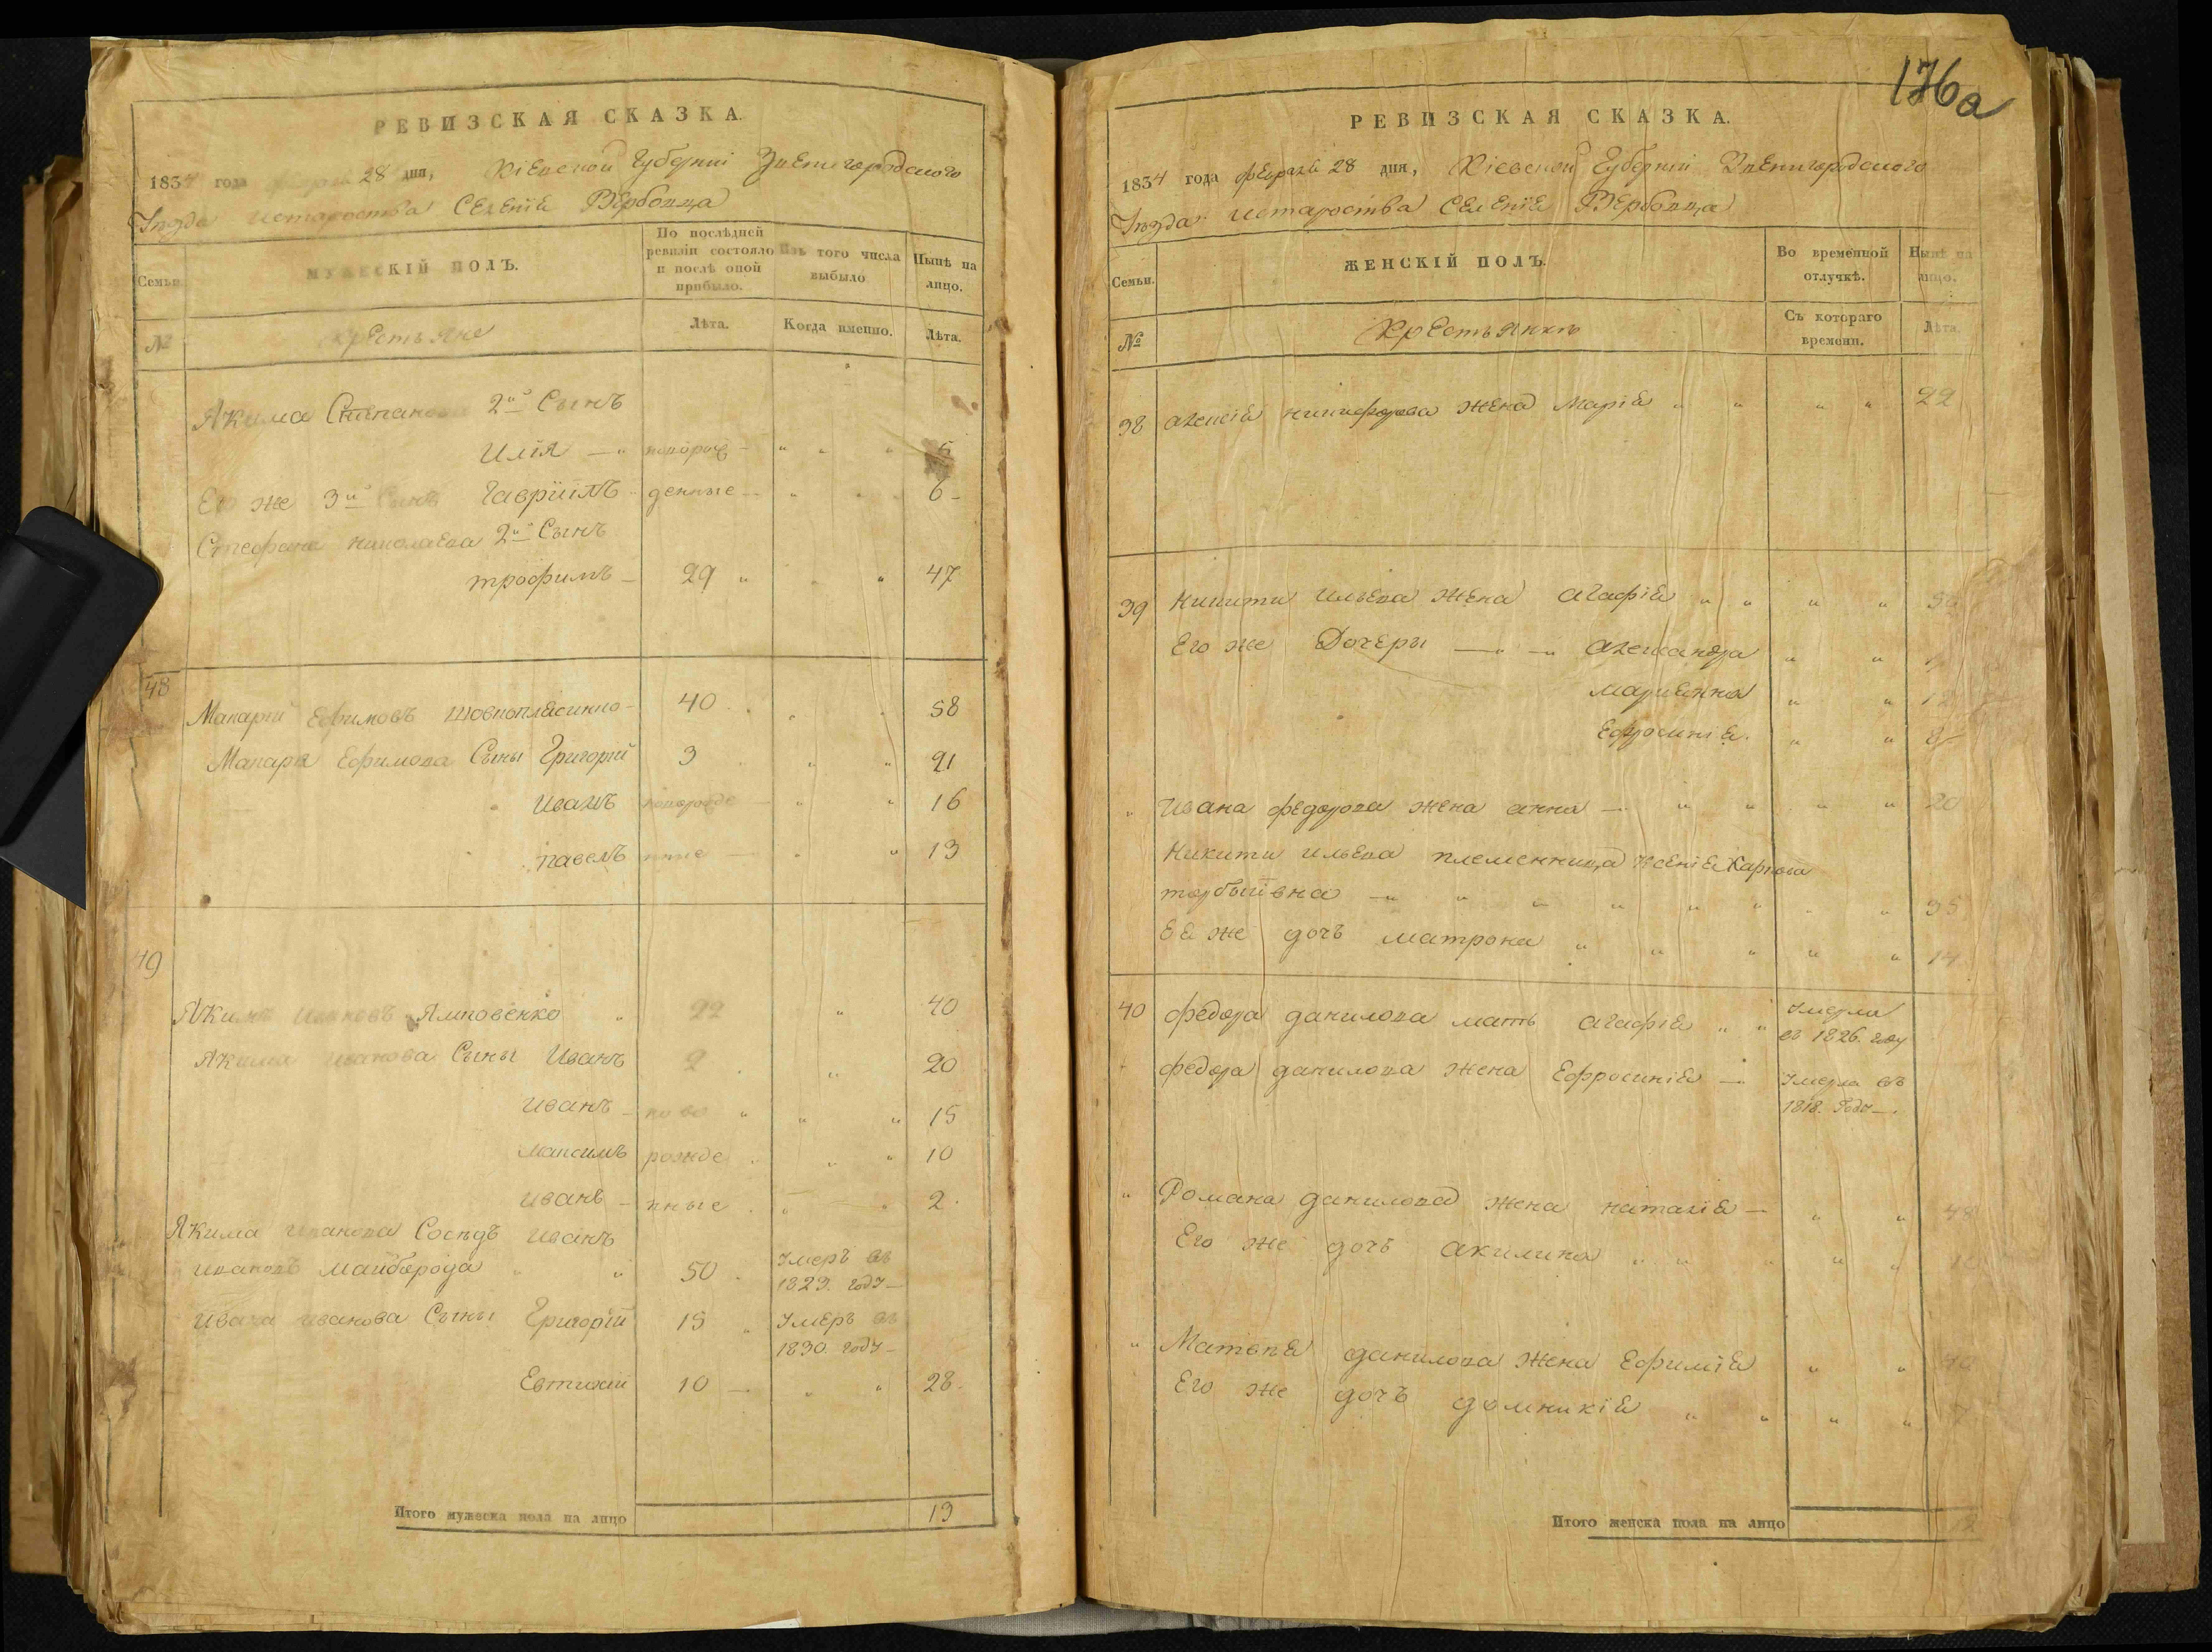 РЕВИЗСКАЯ СКАЗКА.
1834 года февраля 28 дня, Кіевской Губерніи Звенигородского
Уезда Истароства Селеніе Вербовца
Семьи.
МУЖЕСКІЙ ПОЛЪ.
По послѣдней ревизіи состояло и послѣ оной прибыло.
Изъ того числа выбыло
Нынѣ на лицо.
№
Крестьяне
Лѣта.
Когда именно.
Лѣта.
Якима Степанова 2й Сынъ
Илія — новорож — " " " 5
Его же 3й Сынъ Гавріилъ - денные - " " 6 -
Стефана николаева 2й Сынъ
трофимъ - 29 " " " 47
48
Макарій Ефимовъ 40 " " 58
Макара Ефимова Сыны Григорій 3 " " 21
Иванъ новорожде - " " 16
павелъ нные — " " 13
49
Якимъ Ивановъ Ямповенко " 22 " 40
Якима Иванова Сыны Иванъ 2 " 20
Иванъ - ново " " " 15
Максимъ рожде " " 10
Иванъ - нные " " 2.
Якима Иванова Сосѣдъ Иванъ
Ивановъ Майборода " " 50 Умеръ въ
1823. году —
Ивана Иванова Сыны Григорій 15 " Умеръ въ
1830. году -
Евтихій 10 — " " 28.
Итого мужеска пола на лицо 13
176а
РЕВИЗСКАЯ СКАЗКА.
1834 года февраля 28 дня, Кіевской Губерніи Звенигородского
Уезда Истароства Селеніе Вербовца
Семьи.
ЖЕНСКІЙ ПОЛЪ.
Во временной отлучкѣ.
Нынѣ на лицо.
№
Крестьянки
Съ котораго времени.
Лѣта.
38 алексія никифорова жена Маріа " " " " 22
39 Никити илъева жена агафіа " " " "
Его же Дочеры — " — " александра " "
маріанна " " 12
Ефросиніа. " " 8
" Ивана федорова жена анна — " " " " 20
Никити ильева племенница ксеніа Карпова
— " " " " " " " " 35
Еа же дочъ матрона " " " " " 14
40 федора данилова мать агафіа " " Умерла
въ 1826. году
федора данилова жена Ефросиніа — Умерла въ
1818. Году —.
" Романа данилова жена наталіа — " " 48
Его же дочъ акилина " " " " "
" Матвея данилова жена Ефиміа " " 40
Его же дочъ домникіа " " " " 7
Итого женска пола на лицо 12